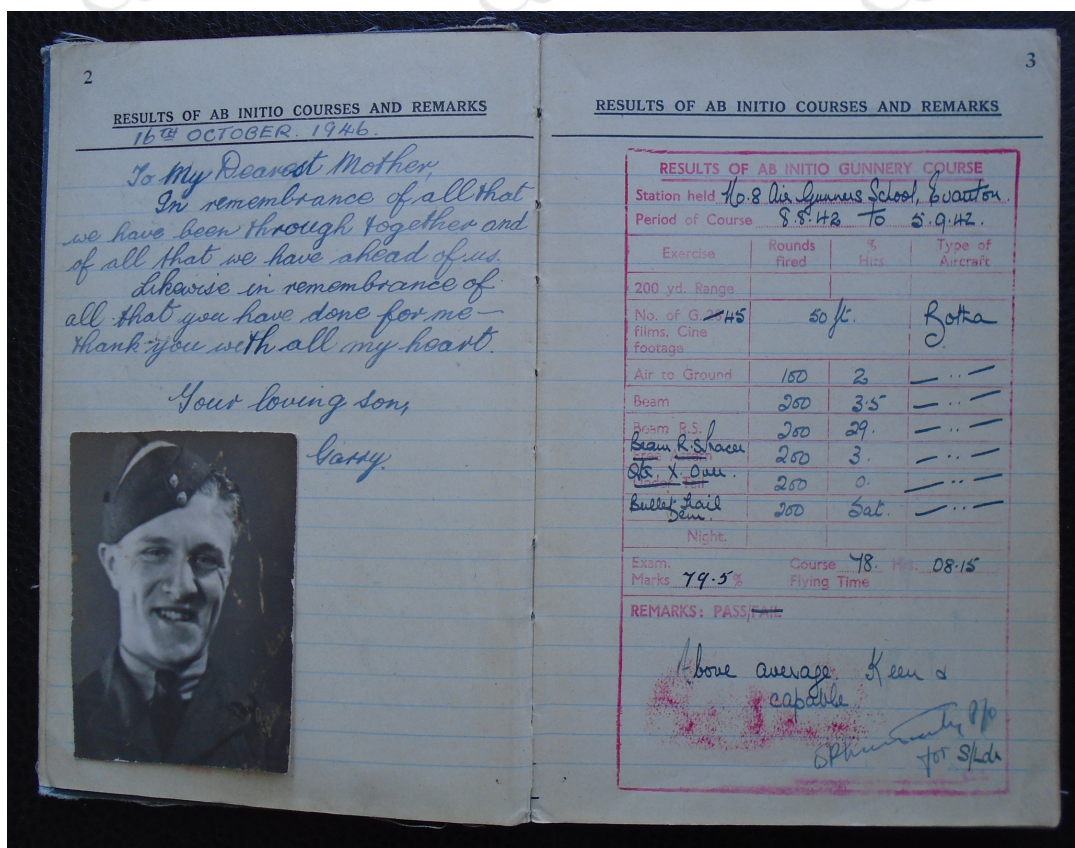 2
RESULTS OF AB INITIO COURSES AND REMARKS
16TH OCTOBER. 1946.
To My Dearest Mother,
In remembrance of all that
we have been through together and
of all that we have ahead of us.
Likewise in remembrance of
all that you have done for me —
thank-you with all my heart.
Your loving son,
Garry.
3
RESULTS OF AB INITIO COURSES AND REMARKS
RESULTS OF AB INITIO GUNNERY COURSE
Station held No.8 Air Gunners School, Evanton.
Period of Course 8.8.42 to 5.9.42.
Exercise Rounds fired % Hits Type of Aircraft
200 yd. Range
No. of G. 45 films, Cine footage 50 ft. Botha
Air to Ground 100 2 — ·· —
Beam 200 3.5 — ·· —
Beam R.S. 200 29. — ·· —
Beam R.S. Tracer 200 3. — ·· —
Qtr. X. Over. 200 0. — ·· —
Bullet Trail Dem. 200 Sat. — ·· —
Night.
Exam. Marks 79.5% Course 78. Hrs. 08.15 Flying Time
REMARKS: PASS/FAIL
Above average. Keen &
capable
P/O
for S/Ldr